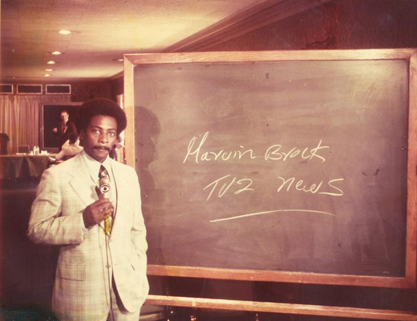 Marvin Brock
TV2 News